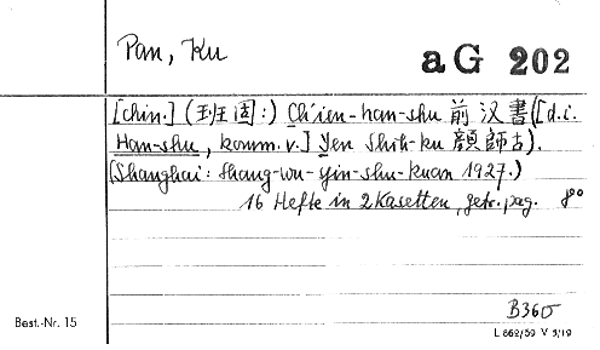 Pan, Ku
aG 202
[chin.] (班固:) Ch'ien-han-shu 前汉書([d.i.
Han-shu, komm. v.] Yen Shih-ku 顔師古).
(Shanghai: Shang-wu-yin-shu-kuan 1927.)
16 Hefte in 2 Kasetten, getr. pag. 8°
B360
Best.-Nr. 15
L 862/59 V 5/19